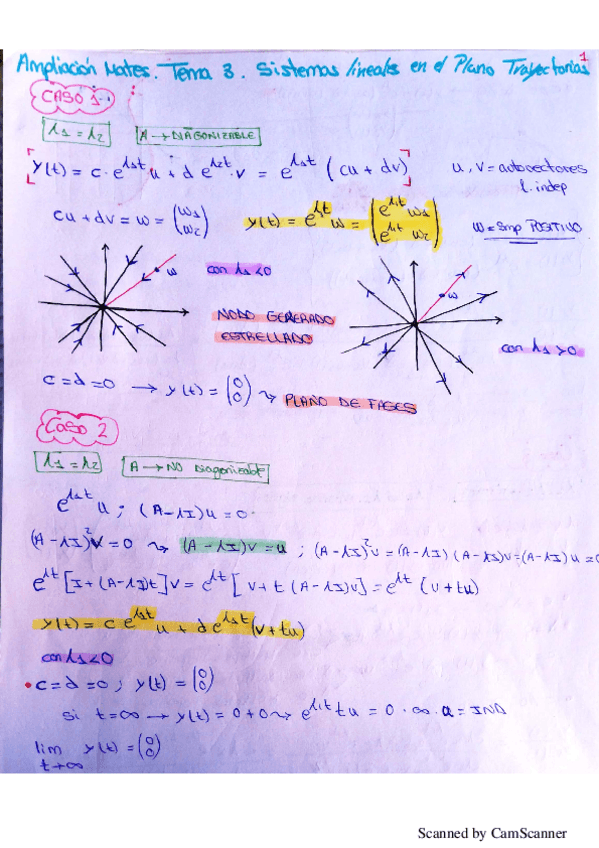 Ampliación Mates. Tema 3. Sistemas lineales en el Plano Trayectorias 1
CASO 1.
λ1 = λ2 A → DIAGONIZABLE
y(t) = c · e^λ1t u + d e^λ2t · v = e^λ1t (cu + dv) u, v = autovectores
l. indep
cu + dv = w = (w1 w2) y(t) = e^λ1t w = (e^λ1t w1 e^λ1t w2) w = Smp POSITIVO
w con λ1 < 0
NODO GENERADO
ESTRELLADO
w
con λ1 > 0
c = d = 0 → y(t) = (0 0) ⇝ PLANO DE FASES
Caso 2
λ1 = λ2 A → NO Diagonizable
e^λ1t u ; (A - λI)u = 0
(A - λI)²v = 0 ⇝ (A - λI)v = u ; (A - λI)²v = (A - λI)(A - λI)v = (A - λI)u = 0
e^λt [I + (A - λI)t]v = e^λt [v + t(A - λI)v] = e^λt (v + tu)
y(t) = c e^λ1t u + d e^λ1t (v + tu)
con λ1 < 0
• c = d = 0 ; y(t) = (0 0)
si t = ∞ → y(t) = 0 + 0 ⇝ e^λ1t tu = 0 · ∞ · u = IND
lim y(t) = (0 0)
t → ∞
Scanned by CamScanner